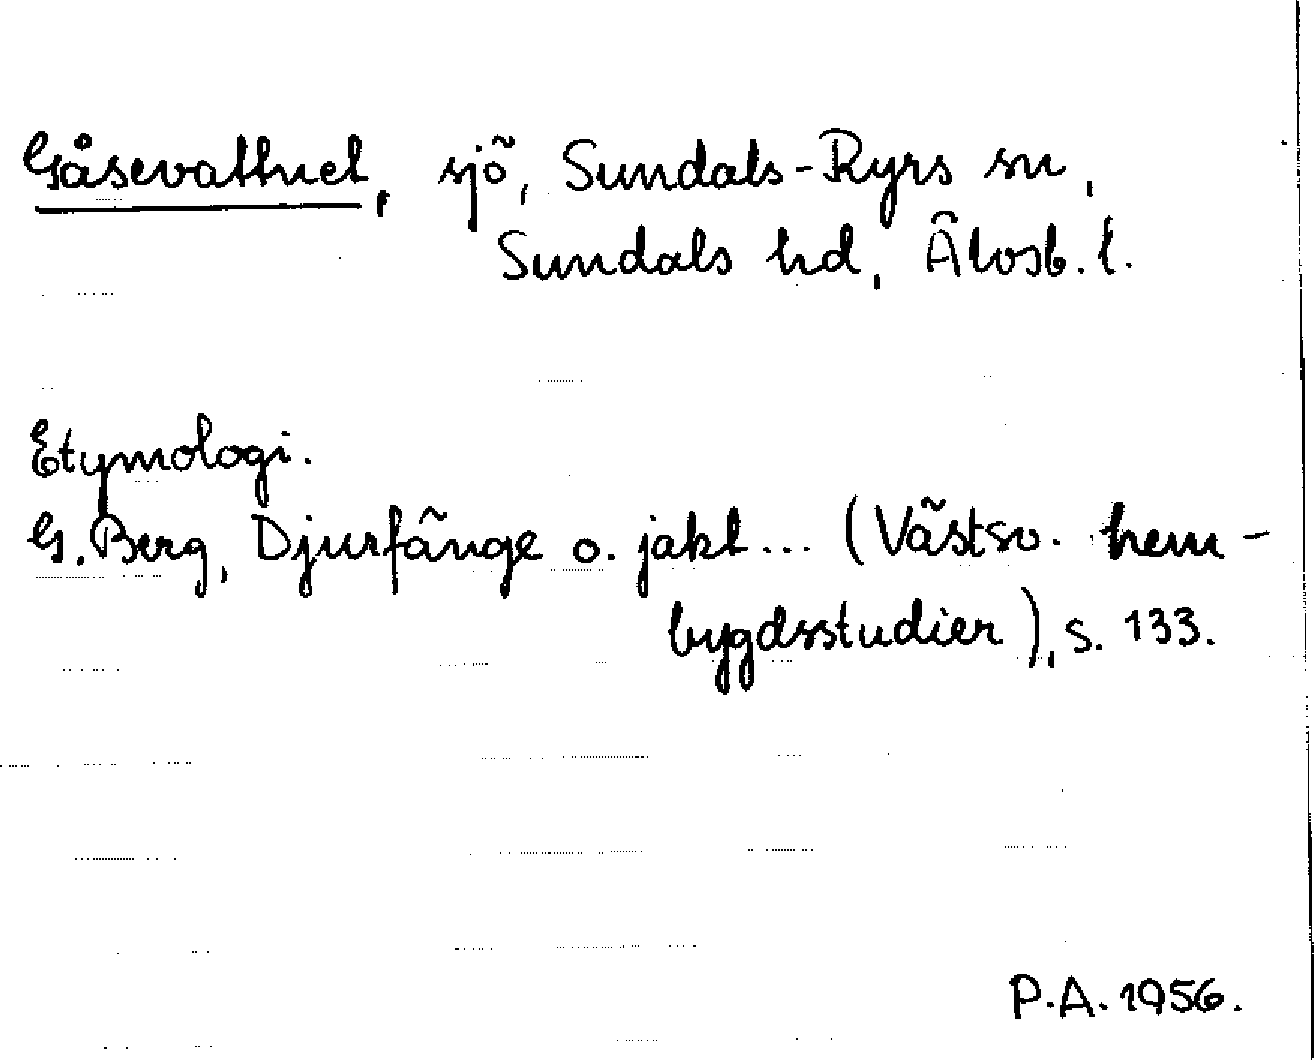 Gåsevattnet, sjö, Sundals-Ryrs sn,
Sundals hd, Älvsb. l.
Etymologi.
G. Berg, Djurfänge o. jakt... (Västsv. hem-
bygdsstudier), s. 133.
P.A. 1956.